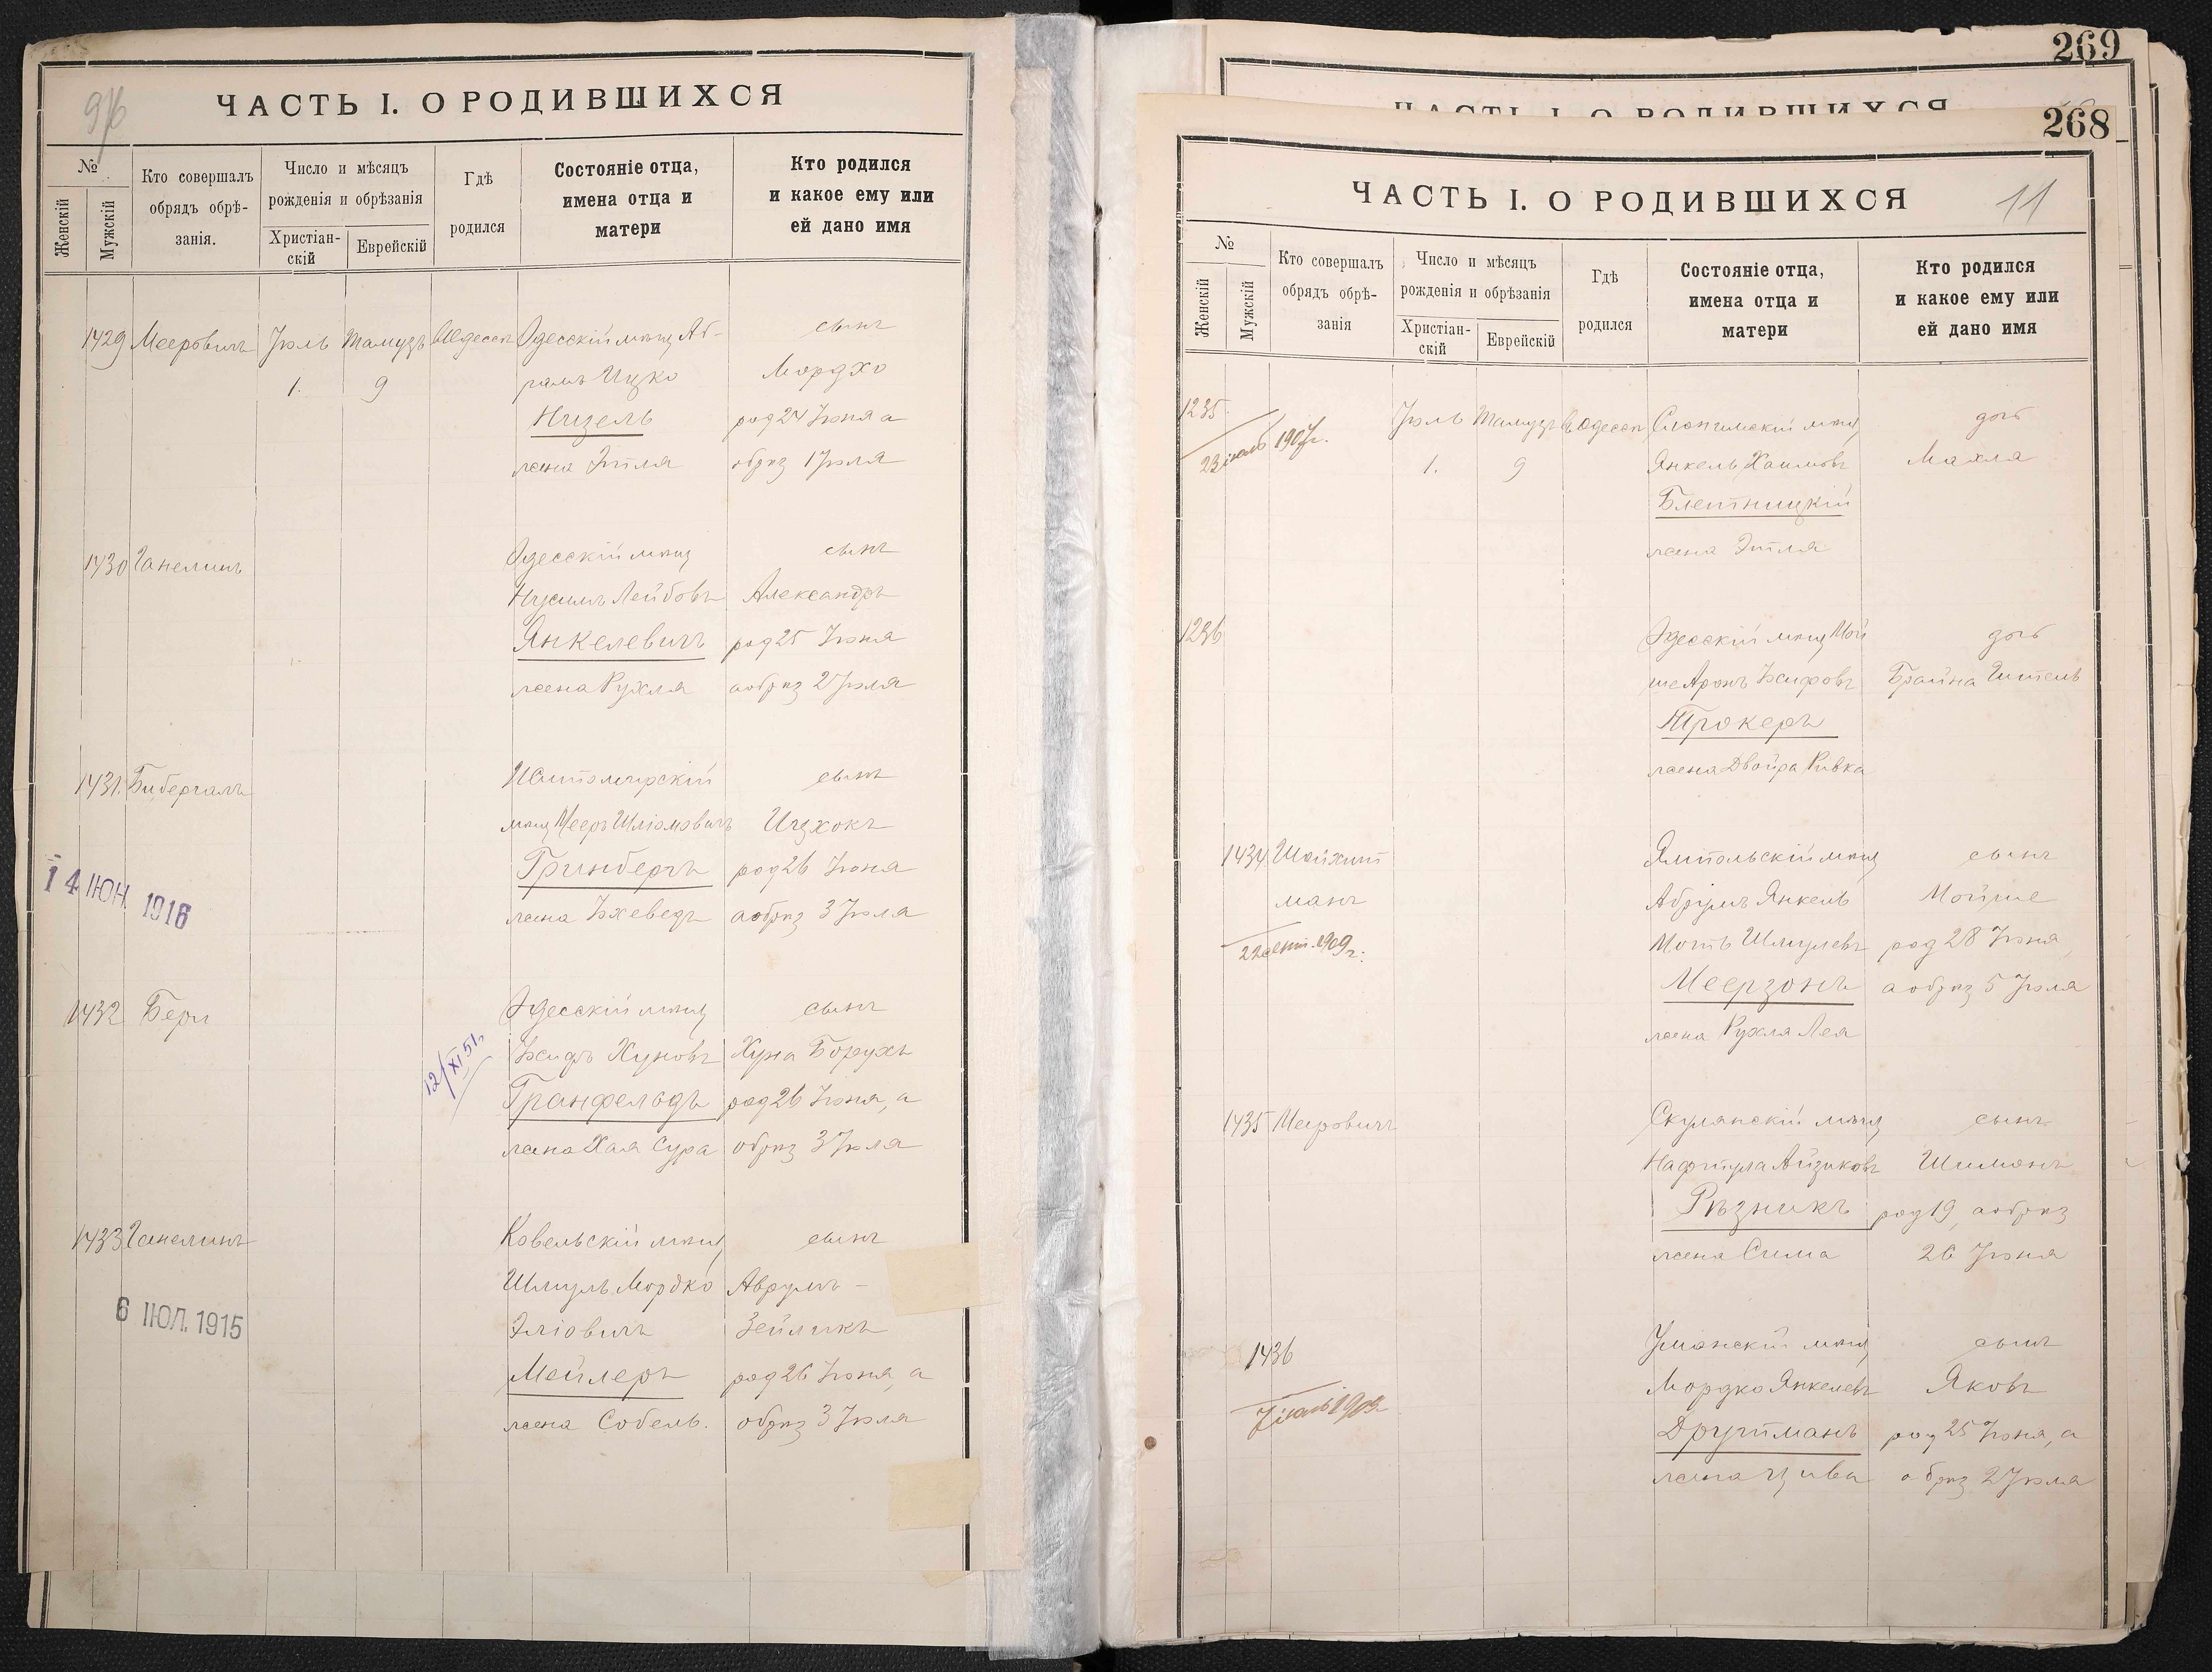 9/6
ЧАСТЬ I. О РОДИВШИХСЯ
№
Женскій
Мужскій
Кто совершалъ
обрядъ обрѣ-
занія.
Число и мѣсяцъ
рожденія и обрѣзанія
Христіан-
скій
Еврейскій
Гдѣ
родился
Состояніе отца,
имена отца и
матери
Кто родился
и какое ему или
ей дано имя
1429 Мееровичъ Іюль Тамузъ Одесскій мѣщ Аб- сынъ
1. 9 рамъ Ицко Мордхо
Низель род 24 Іюня а
жена Этля обрѣз 1 Іюля
1430 Ганелинъ Одесскій мѣщ сынъ
Нусимъ Лейбовъ Александръ
Янкелевичъ род 25 Іюня
жена Рухля а обрѣз 2 Іюля
1431 Бибергалъ Житомирскій сынъ
мѣщ Мееръ Шліомовичъ Ицхокъ
Гринбергъ род 26 Іюня
14 ІЮН. 1916
жена Іохеведъ а обрѣз 3 Іюля
1432 Берл Одесскій мѣщ сынъ
12/XI 51.
Хуновъ Хуна Борухъ
Гранфельдъ род 26 Іюня, а
жена Хая Сура обрѣз 3 Іюля
1433 Ганелинъ Ковельскій мѣщ сынъ
Шмуль Мордко Аврумъ-
6 ІЮЛ. 1915
Эліовичъ Зейликъ
Мейлеръ род 26 Іюня, а
жена Собель. обрѣз 3 Іюля
269
ЧАСТЬ I. О РОДИВШИХСЯ
268
ЧАСТЬ I. О РОДИВШИХСЯ
11
№
Женскій
Мужскій
Кто совершалъ
обрядъ обрѣ-
занія
Число и мѣсяцъ
рожденія и обрѣзанія
Христіан-
скій
Еврейскій
Гдѣ
родился
Состояніе отца,
имена отца и
матери
Кто родился
и какое ему или
ей дано имя
1235. Іюль Тамузъ въ Одессѣ Слонимскій мѣщ дочь
23 1907г. 1. 9 Янкель Хаимовъ Махла
Блетницкій
жена Этля
1236 Одесскій мѣщ Мой дочь
ше Аронъ Іосифовъ Брайна Гитель
Трокеръ
жена Двойра Ривка
1434 Шойхит Ямпольскій мѣщ сынъ
манъ Абрумъ Янкель Мойше
22 сент. 1909 г. Мотъ Шмулевъ род 28 Іюня,
Меерзонъ а обрѣз 5 Іюля
жена Рухля Лея
1435 Мееровичъ Скулянскій мѣщ сынъ
Нафтула Айзиковъ Шимонъ
Рѣзникъ род 19, а обрѣз
жена Сима 26 Іюня
1436 Уманскій мѣщ сынъ
Мордко Янкелевъ Яковъ
Друтманъ род 25 Іюня, а
жена Цива обрѣз 2 Іюля